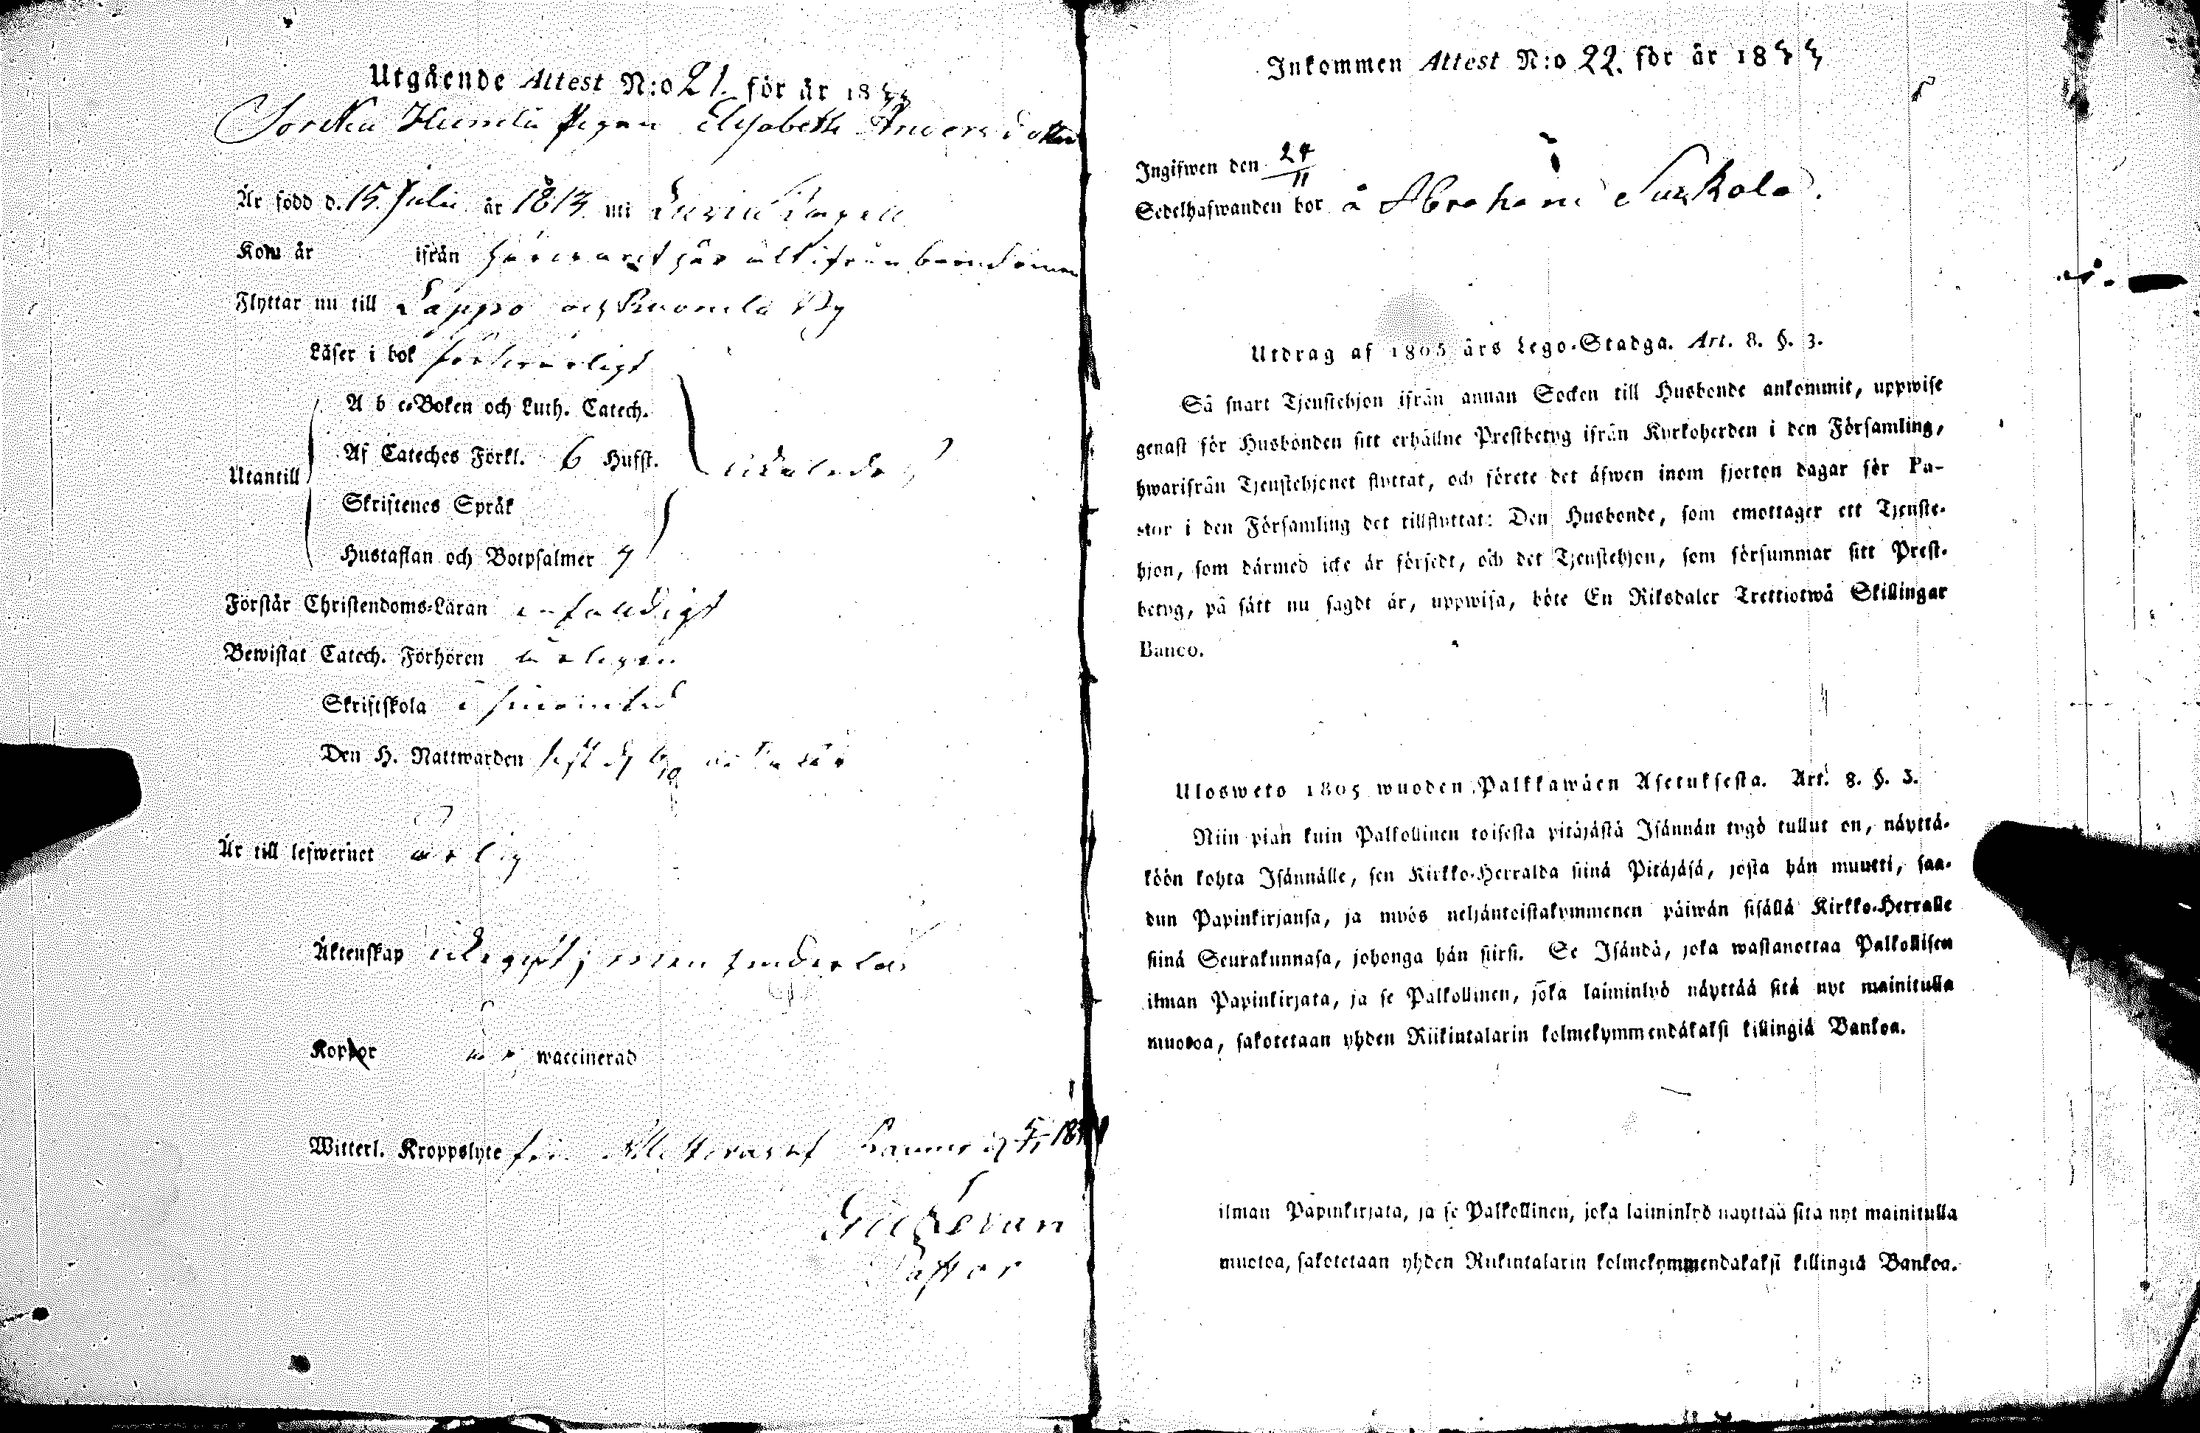 Utgående Attest N:o 21. för år 1844
Pigan Elisabeth Andersdotter
Är född d. 15 Julii år 1813 uti
Kom år ifrån härwarit här alltifrån barndomen
Flyttar nu till Lappo och By
Läser i bok förswarligt
A b c-Boken och Luth. Catech.
Af Cateches Förkl. 6 Hufst.
Utantill
Skriftenes Språk
Hustaflan och Botpsalmer 7
Förstår Christendoms-Läran enfaldigt
Bewistat Catech. Förhören årligen
Skriftskola i sinom tid
Den H. Nattwarden sist d.
Är till lefwernet ärlig
Äktenskap ledig
Koppor är waccinerad
Witterl. Kroppslyte fri
Pastor
Inkommen Attest N:o 22. för år 1844
Ingifwen den 24/11
Sedelhafwanden bor å Abraham
Utdrag af 1805 års Lego-Stadga. Art. 8. §. 3.
Så snart Tjenstehjon ifrån annan Socken till Husbonde ankommit, uppwise
genast för Husbonden sitt erhållne Prestbetyg ifrån Kyrkoherden i den Församling,
hwarifrån Tjenstehjonet flyttat, och förete det äfwen inom fjorton dagar för Pa-
stor i den Församling det tillflyttat: Den Husbonde, som emottager ett Tjenste-
hjon, som därmed icke är försedt, och det Tjenstehjon, som försummar sitt Prest-
betyg, på sätt nu sagdt är, uppwisa, böte En Riksdaler Trettiotwå Skillingar
Banco.
Ulosweto 1805 wuoden Palkkawäen Asetuksesta. Art. 8. §. 3.
Niin pian kuin Palkollinen toisesta pitäjästä Isännän tygö tullut on, näyttä-
köön kohta Isännälle, sen Kirkko-Herralda siinä Pitäjäsä, josta hän muutti, saa-
dun Papinkirjansa, ja myös neljäntoistakymmenen päiwän sisällä Kirkko-Herralle
siinä Seurakunnasa, johonga hän siirsi. Se Isändä, joka wastanottaa Palkollisen
ilman Papinkirjata, ja se Palkollinen, joka laiminlyö näyttää sitä nyt mainitulla
muotoa, sakotetaan yhden Riikintalarin kolmekymmendäkaksi killingiä Bankoa.
ilman Papinkirjata, ja se Palkollinen, joka laiminlyö näyttää sitä nyt mainitulla
muotoa, sakotetaan yhden Riikintalarin kolmekymmendäkaksi killingiä Bankoa.